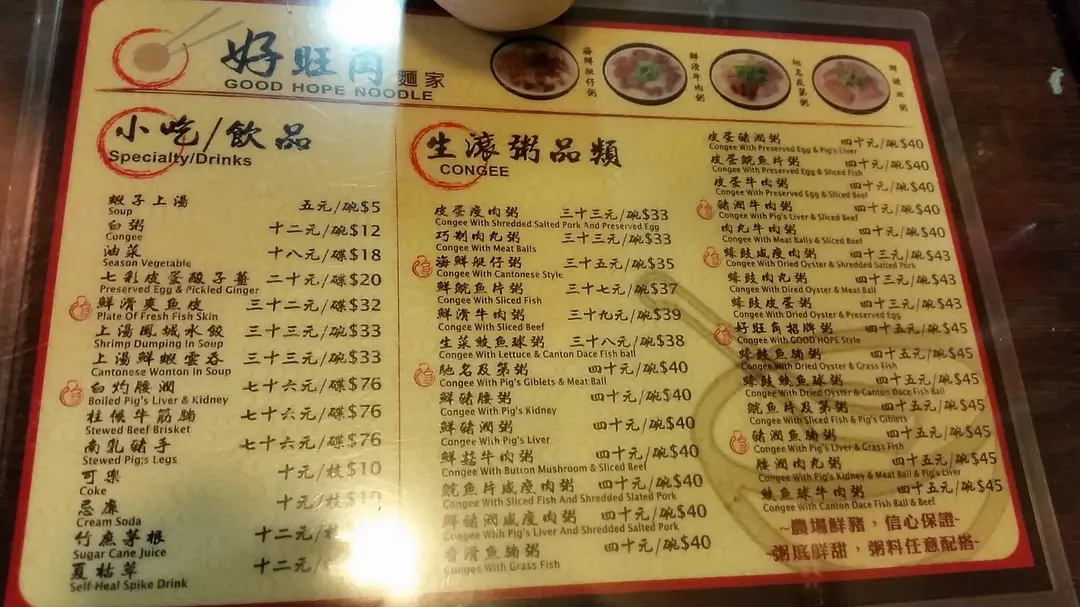 好旺角麵家
GOOD HOPE NOODLE
海鮮艇仔粥
鮮滑牛肉粥
馳名及第粥
小吃/飲品
Specialty/Drinks
蝦子上湯 五元/碗$5
Soup
白粥 十二元/碗$12
Congee
油菜 十八元/碟$18
Season Vegetable
七彩皮蛋酸子薑 二十元/碟$20
Preserved Egg & Pickled Ginger
鮮滑爽魚皮 三十二元/碟$32
Plate Of Fresh Fish Skin
上湯鳳城水餃 三十三元/碗$33
Shrimp Dumping In Soup
上湯鮮蝦雲吞 三十三元/碗$33
Cantonese Wonton In Soup
白灼腰潤 七十六元/碟$76
Boiled Pig's Liver & Kidney
柱侯牛筋腩 七十六元/碟$76
Stewed Beef Brisket
南乳豬手 七十六元/碟$76
Stewed Pig;s Legs
可樂 十元/枝$10
Coke
忌廉 十元/枝$10
Cream Soda
竹蔗茅根 十二元/
Sugar Cane Juice
夏枯草 十二元
Self-Heal Spike Drink
生滾粥品類
CONGEE
皮蛋瘦肉粥 三十三元/碗$33
Congee With Shredded Salted Pork And Preserved Egg
巧制肉丸粥 三十三元/碗$33
Congee With Meat Balls
海鮮艇仔粥 三十五元/碗$35
Congee With Cantonese Style
鮮鯇魚片粥 三十七元/碗$37
Congee With Sliced Fish
鮮滑牛肉粥 三十九元/碗$39
Congee With Sliced Beef
生菜鯪魚球粥 三十八元/碗$38
Congee With Lettuce & Canton Dace Fish ball
馳名及第粥 四十元/碗$40
Congee With Pig's Giblets & Meat Ball
鮮豬腰粥 四十元/碗$40
Congee With Pig's Kidney
鮮豬潤粥 四十元/碗$40
Congee Wish Pig's Liver
鮮菇牛肉粥 四十元/碗$40
Congee With Button Mushroom & Sliced Beef
鯇魚片咸瘦肉粥 四十元/碗$40
Congee With Sliced Fish And Shredded Slated Pork
鮮豬潤咸瘦肉粥 四十元/碗$40
Congee With Pig's Liver And Shredded Salted Pork
香滑魚腩粥 四十元/碗$40
Congee With Grass Fish
皮蛋豬潤粥 四十元/碗$40
Congee With Preserved Egg & Pig's Liver
皮蛋鯇魚片粥 四十元/碗$40
Congee With Preserved Egg & Sliced Fish
皮蛋牛肉粥 四十元/碗$40
Congee With Preserved Egg & Sliced Beef
豬潤牛肉粥 四十元/碗$40
Congee With Pig's Liver & Sliced Beef
肉丸牛肉粥 四十元/碗$40
Congee With Meat Balls & Sliced Beef
蠔豉咸瘦肉粥 四十三元/碗$43
Congee With Dried Oyster & Shredded Salted Pork
蠔豉肉丸粥 四十三元/碗$43
Congee With Dried Oyster & Meat Ball
蠔豉皮蛋粥 四十三元/碗$43
Congee With Dried Oyster & Preserved Egg
好旺角招牌粥 四十五元/碗$45
Congee With GOOD HOPE Style
蠔豉魚腩粥 四十五元/碗$45
Congee With Dried Oyster & Grass Fish
蠔豉鯪魚球粥 四十五元/碗$45
Congee With Dried Oyster & Canton Dace Fish Ball
鯇魚片及第粥 四十五元/碗$45
Congee With Sliced Fish & Pig's Giblets
豬潤魚腩粥 四十五元/碗$45
Congee With Pig's Liver & Grass Fish
腰潤肉丸粥 四十五元/碗$45
Congee With Pig's Kidney & Meat Ball & Pig's Liver
鯪魚球牛肉粥 四十五元/碗$45
Congee With Canton Dace Fish Ball & Beef
~農場鮮豬，信心保證~
~粥底鮮甜，粥料任意配搭~